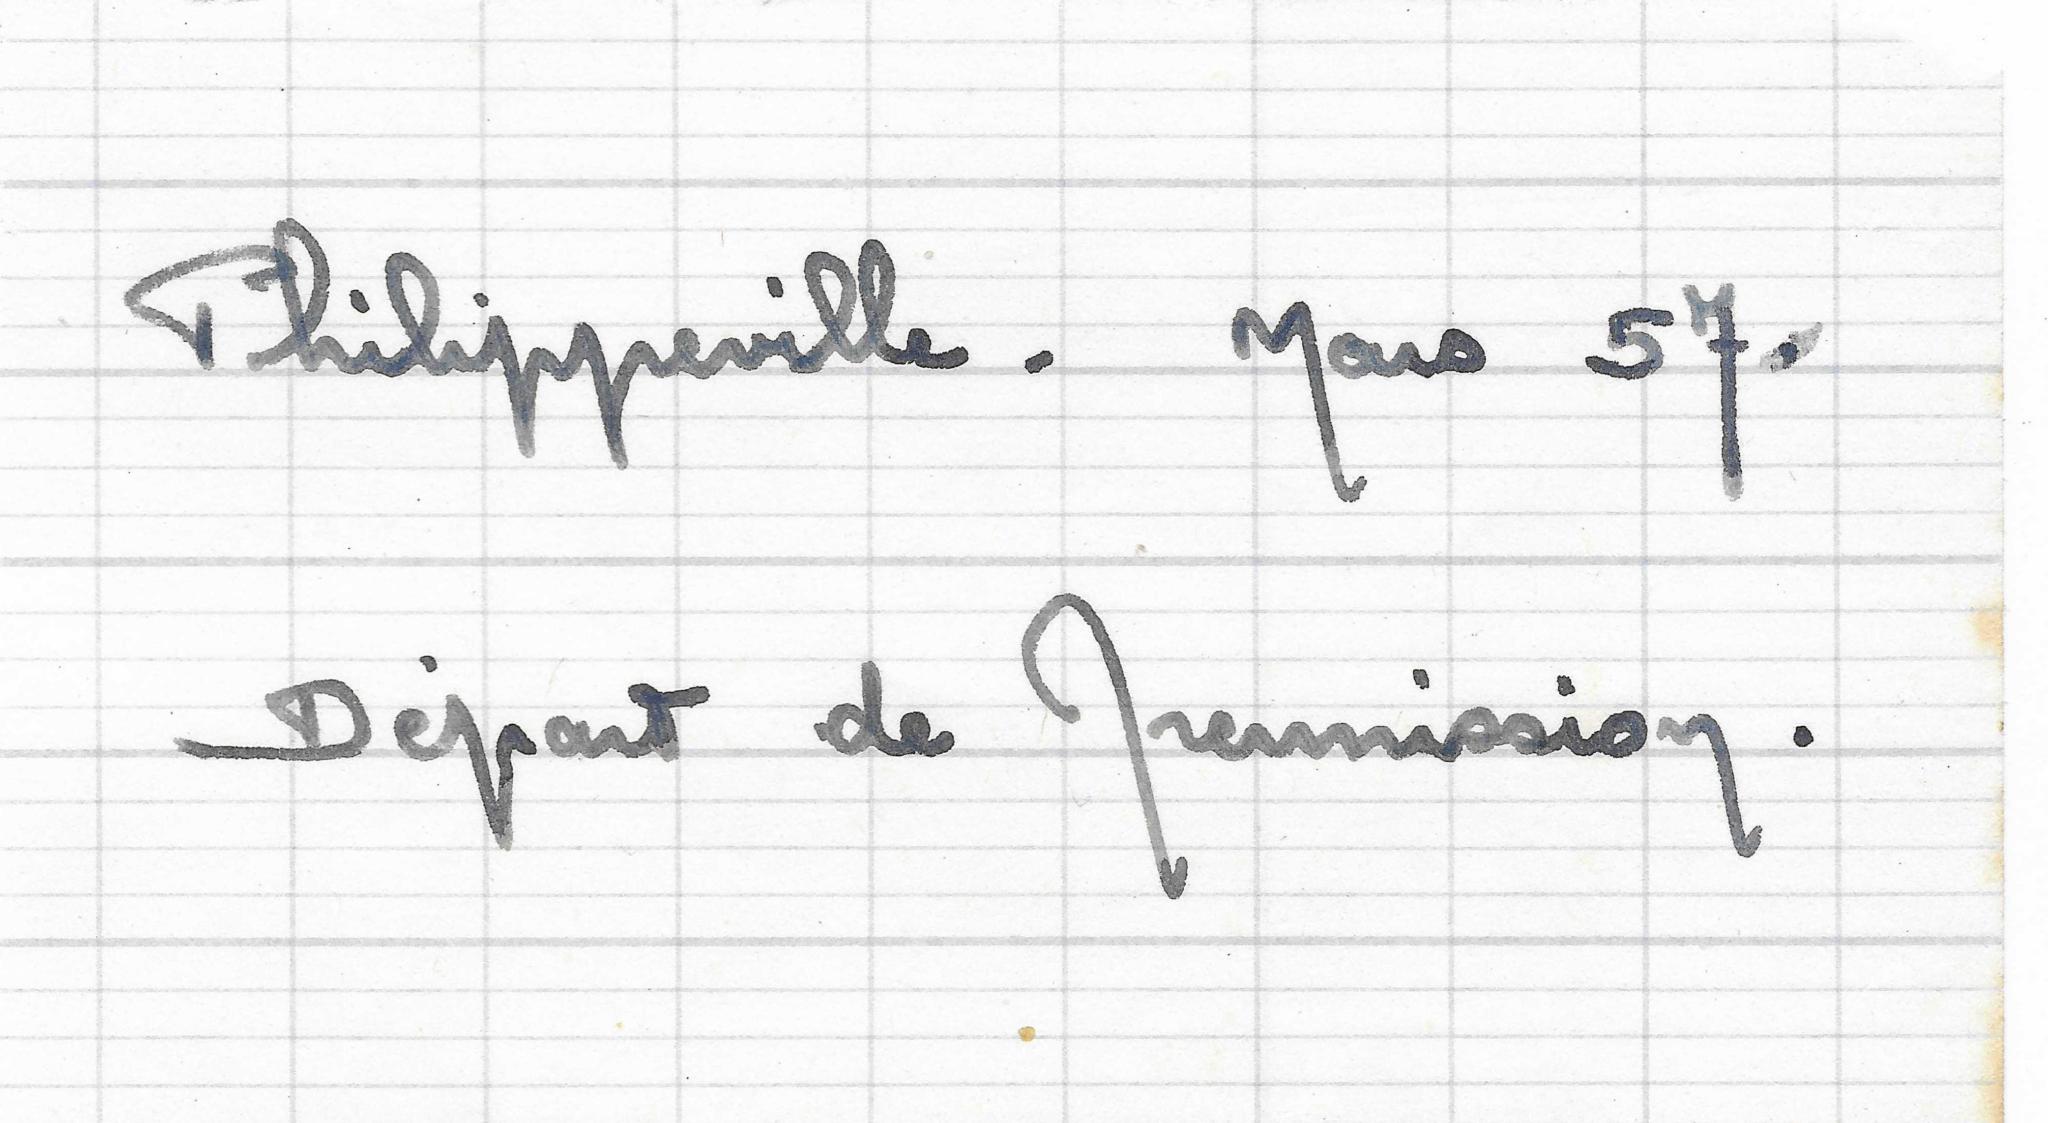 Philippeville. Mars 57.
Départ de permission.